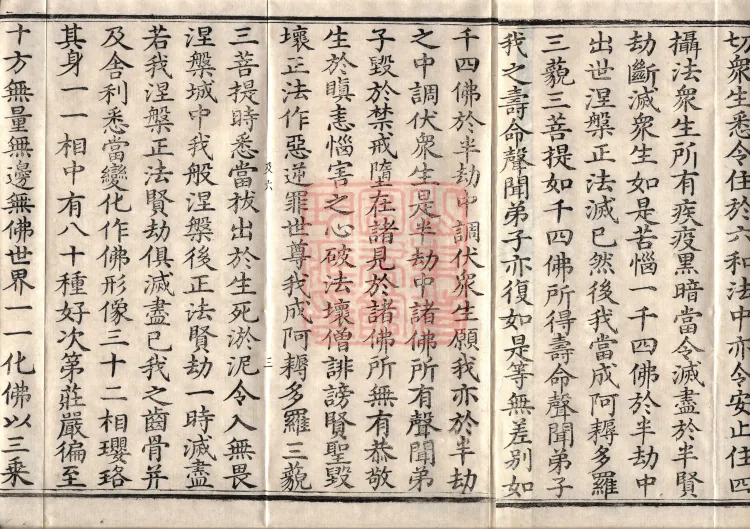 切衆生悉令住於六和法中亦令安止住四
攝法衆生所有疾疫黒暗當令滅盡於半賢
劫斷滅衆生如是苦惱一千四佛於半劫中
出世涅槃正法滅已然後我當成阿耨多羅
三藐三菩提如千四佛所得壽命聲聞弟子
我之壽命聲聞弟子亦復如是等無差别如
千四佛於半劫中調伏衆生願我亦於半劫
之中調伏衆生是半劫中諸佛所有聲聞弟
子毀於禁戒墮在諸見於諸佛所無有恭敬
生於瞋恚惱害之心破法壞僧誹謗賢聖毀
壞正法作惡逆罪世尊我成阿耨多羅三藐
及六
三
三菩提時悉當拔出於生死淤泥令入無畏
涅槃城中我般涅槃後正法賢劫一時滅盡
若我涅槃正法賢劫俱滅盡已我之齒骨并
及舍利悉當變化作佛形像三十二相瓔珞
其身一一相中有八十種好次第莊嚴徧至
十方無量無邊無佛世界一一化佛以三乘